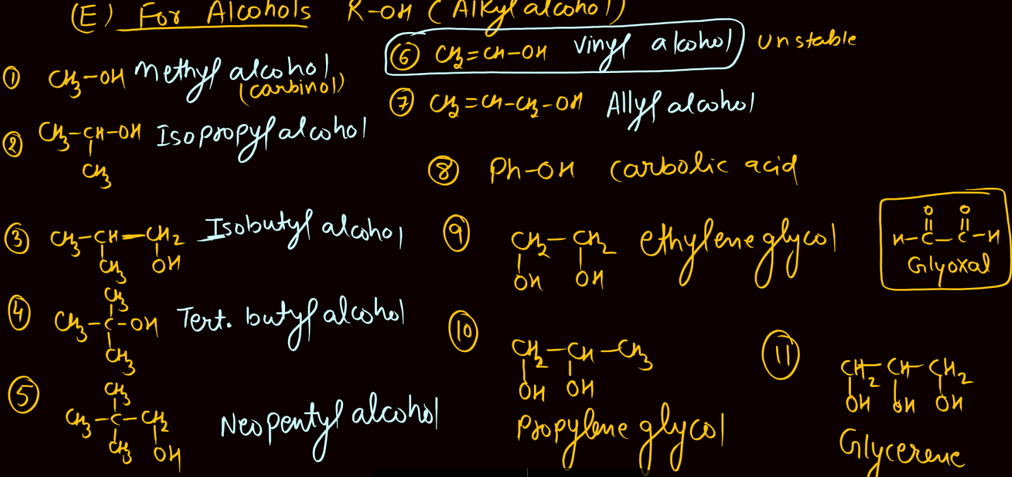 (E) For Alcohols R-OH (Alkyl alcohol)
① CH3-OH Methyl alcohol
(carbinol)
② CH3-CH-OH Isopropyl alcohol
CH3
③ CH3-CH-CH2 Isobutyl alcohol
CH3 OH
④ CH3
CH3-C-OH Tert. butyl alcohol
CH3
⑤ CH3
CH3-C-CH2 Neopentyl alcohol
CH3 OH
⑥ CH2=CH-OH Vinyl alcohol Unstable
⑦ CH2=CH-CH2-OH Allyl alcohol
⑧ Ph-OH Carbolic acid
⑨ CH2-CH2 ethylene glycol
OH OH
O O
H-C-C-H
Glyoxal
⑩ CH2-CH-CH3
OH OH
Propylene glycol
⑪ CH2-CH-CH2
OH OH OH
Glycerene